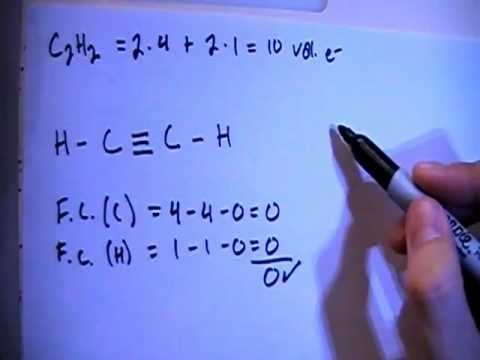 C₂H₂ = 2·4 + 2·1 = 10 val. e-
H - C ≡ C - H
F.C. (C) = 4 - 4 - 0 = 0
F.C. (H) = 1 - 1 - 0 = 0
0✓